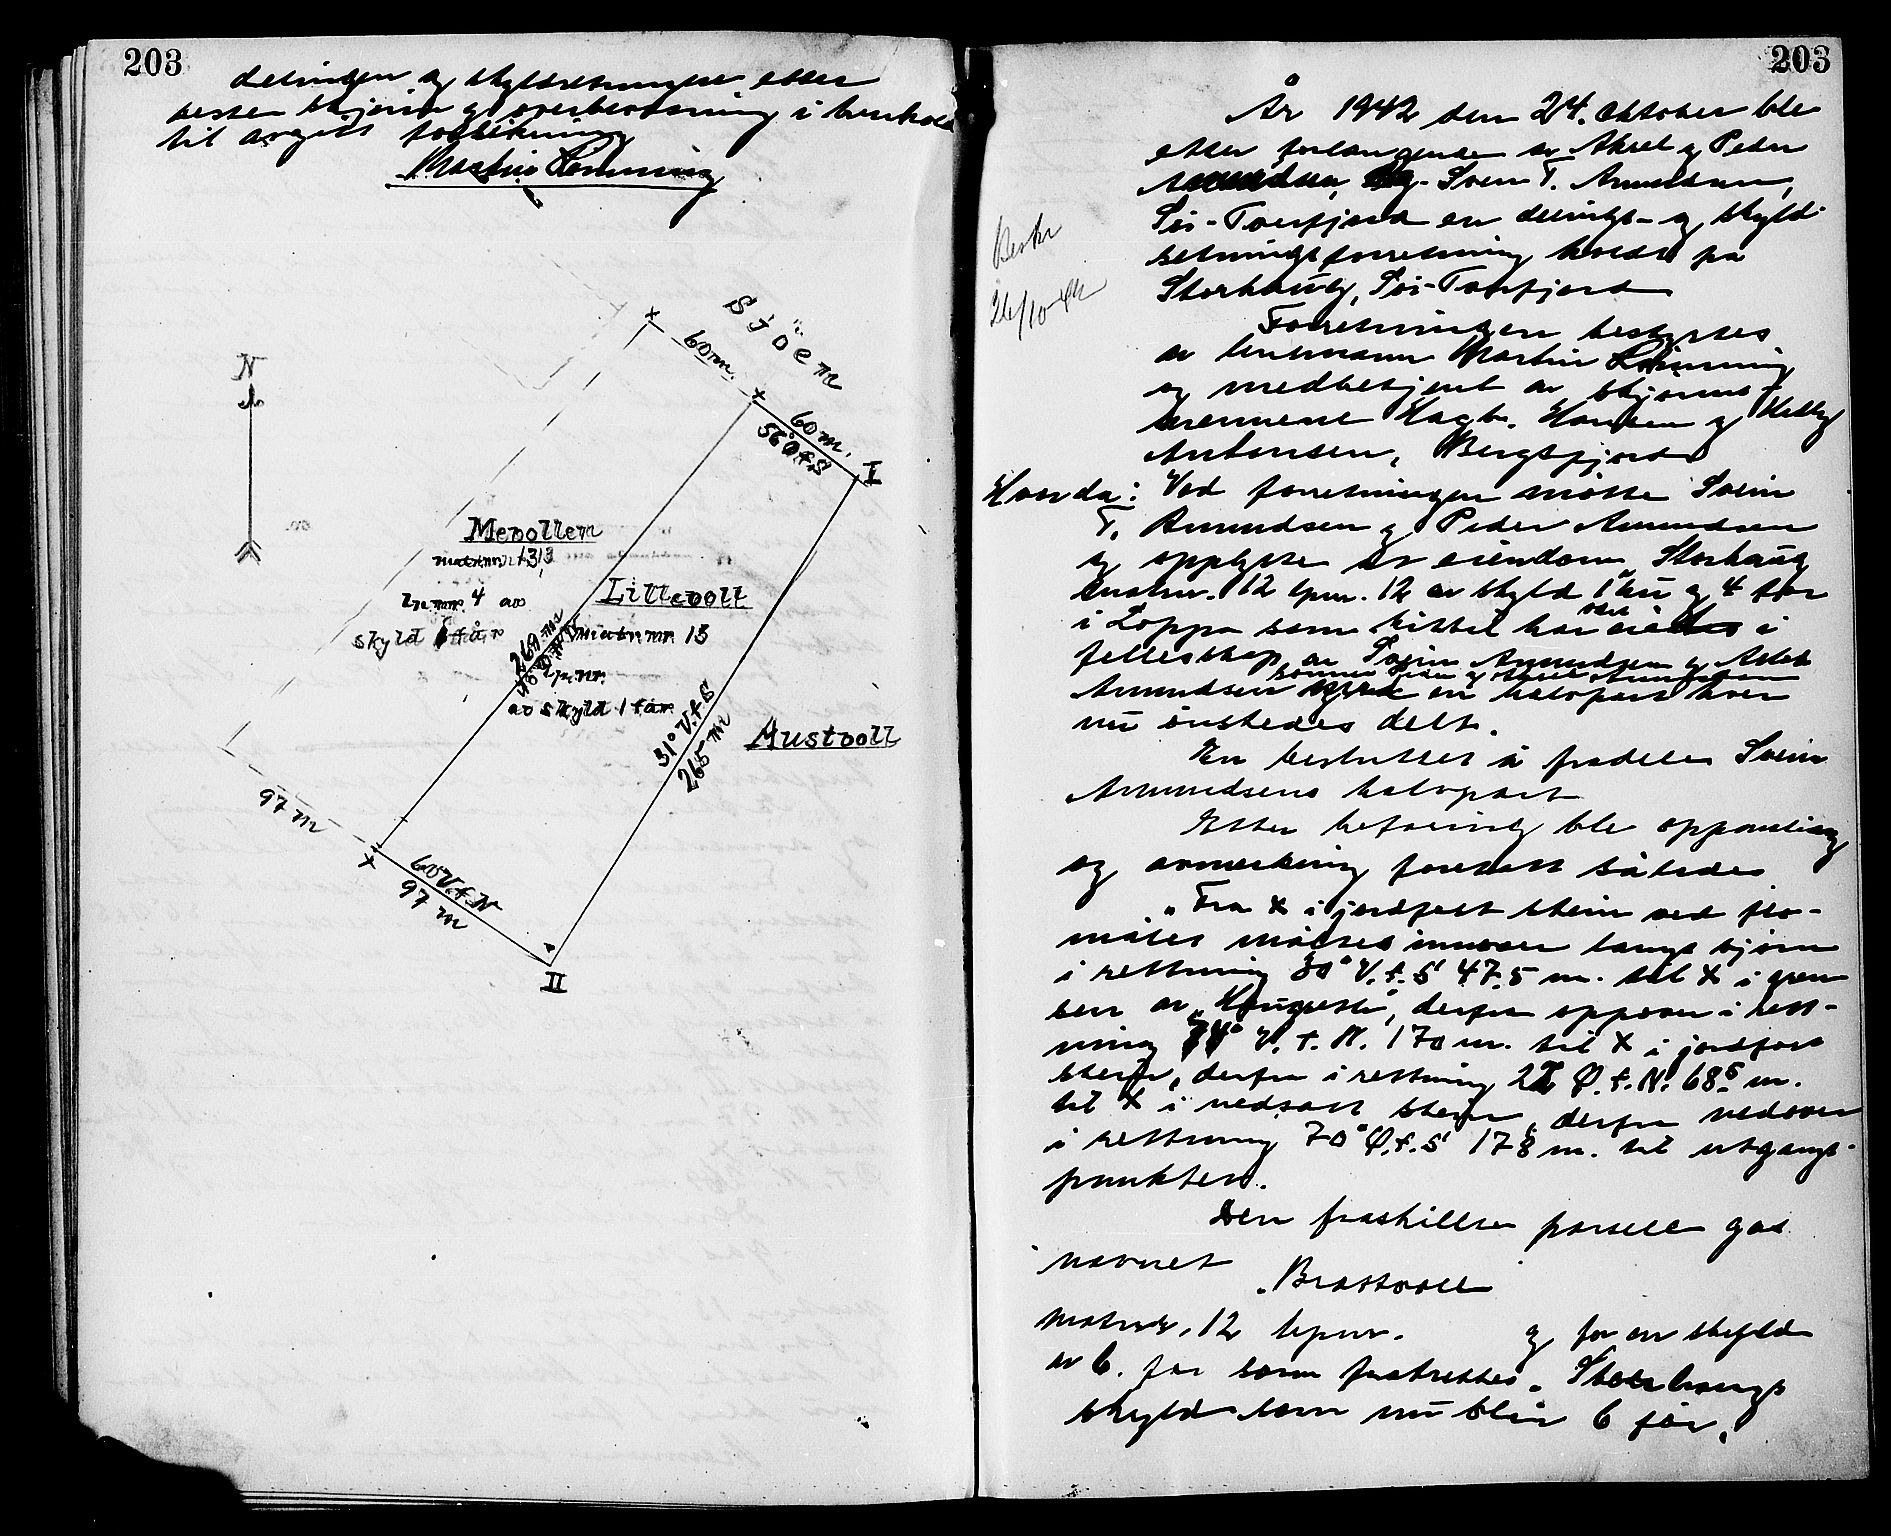 203
delingen og skyldsetningen etter
beste skjønn og overbevisning i henhold
til avgitt forsikring
Martin Rønning
Sjöen
N
60 m.
60 m.
56° Ø.f.S
I
Mevollen
matr.nr. 13
br.nr. 4 av
skyld 1 får
Littevoll
matr.nr. 13
lp.nr.
av skyld 1 får
269 m
31° V.f.S
265 m
Austvoll
97 m
60 V.f.N
97 m
II
203
År 1942 den 24. oktober ble
etter forlangende av Aksel og Peder
Amundsen, og Svein T. Amundsen,
Sör-Tverfjord en delings- og skyld-
setningsforretning holdt på
Storhaug, Sör-Tverfjord
Bevkr
26/10-42
Forretningen bestyrtes
av lensmann Martin Rønning
og medbetjent av skjönns-
mennene Hagb. Hansen og Helby
Antonsen, Bergsfjord
Hvorda: Ved forretningen mötte Svein
T. Amundsen og Peder Amundsen
og opplyste at eiendom Storhaug
matrnr. 12 lpnr. 12 av skyld 1 ku og 4 får
i Loppa som hittil har vært eiet i
fellesskap av Svein Amundsen og Aksel
sönner Peder og Aksel Amundsen
Amundsen en halvpart hver
nu önskedes delt.
En besluttet å fradele Svein
Amundsens halvpart
Etter befaring ble oppmåling
og avmerking foretatt således
„Fra X i jordfast stein ved flo-
målet måltes innover langs sjöen
i rettning 30° V.f.S 47,5 m. til X i gren
sen av „Haugnes", derfra oppover i rett-
ning 74° V.f.N. 170 m. til X i jordfast
stein, derfra i rettning 22 Ø.f.N. 68,5 m.
til X i nedsatt stein, derfra nedover
i rettning 70° Ø.f.S 178 m. til utgangs-
punktet.
Den fraskillte parsell gas
navnet
„Brattvoll
matrnr. 12 lpnr. og for en skyld
av 6. får som fratrekkes. Storhaugs
skyld som nu blir 6 får.